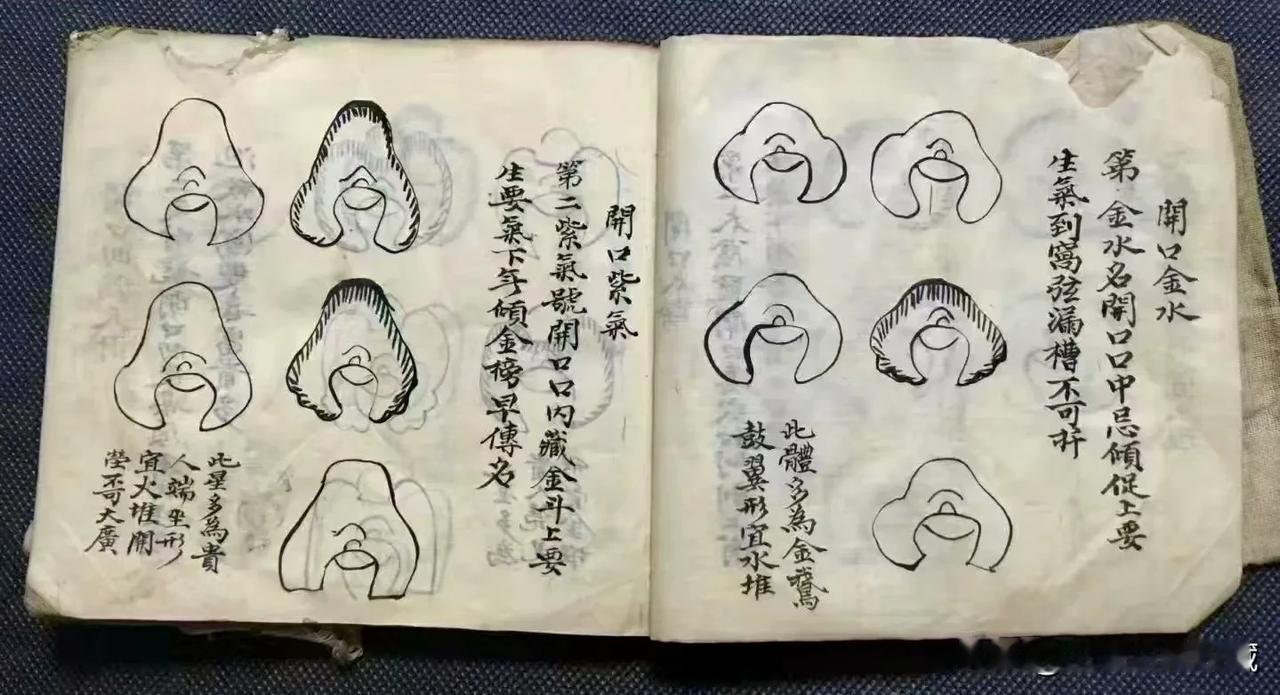 開口金水
第一金水名開口口中忌傾促上要
生氣到窩弦漏槽不可扦
此體多為金鵞
鼓翼形宜水堆
開口紫氣
第二紫氣號開口口內藏金斗上要
生要氣下平傾金榜早傳名
此星多為貴
人端坐形
宜火堆開
塋不可大廣